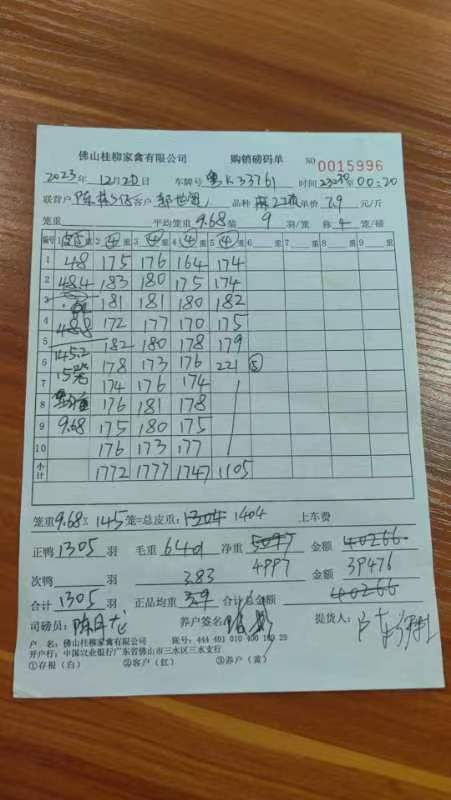 佛山桂柳家禽有限公司 购销磅码单 NO 0015996
2023年 12月20日 车牌号 粤K33761 时间 23:30至00:20
联营户 客户 邹世 品种 单价 7.9 元/斤
笼重 平均笼重 9.68 装 9 羽/笼 称 4 笼/磅
编号 1 皮重 2 ④ 重 3 ④ 重 4 ④ 重 5 ④ 重 6 重 7 重 8 重 9 重
1 48 175 176 164 174
2 48.4 183 180 175 174
3 181 181 180 182
4 48.8 172 177 170 175
5 145.2 182 180 178 179
6 15笼 178 173 176 221 ⑤
7 174 176 174
8 176 181 178
9 9.68 175 180 175
10 176 173 177
小计 1772 1777 1747 1105
笼重 9.68 × 145 笼=总皮重: 1304 1404 上车费
正鸭 1305 羽 毛重 6401 净重 5097 金额 40266
次鸭 羽 3.83 4997 金额 39476
合计 1305 羽 正品均重 3.9 合计总金额 40266
司磅员: 陈 龙 养户签名: 提货人:
户 名: 佛山桂柳家禽有限公司 账号: 444 401 010 400 180 29
开户行: 中国兴业银行广东省佛山市三水区三水支行
①存根(白) ②客户(红) ③养户(黄)